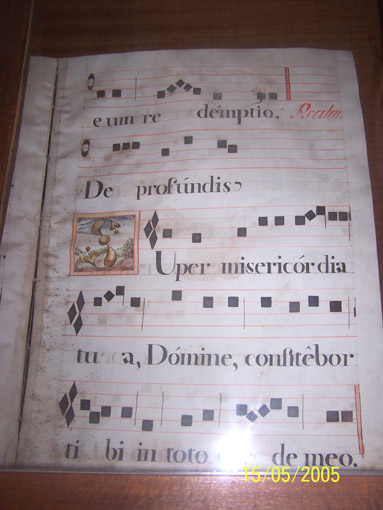 e um re démptio. Psalm.
De profúndis,
SUper misericórdia
tu a, Dómine, confitêbor
ti bi in toto de meo.
15/05/2005